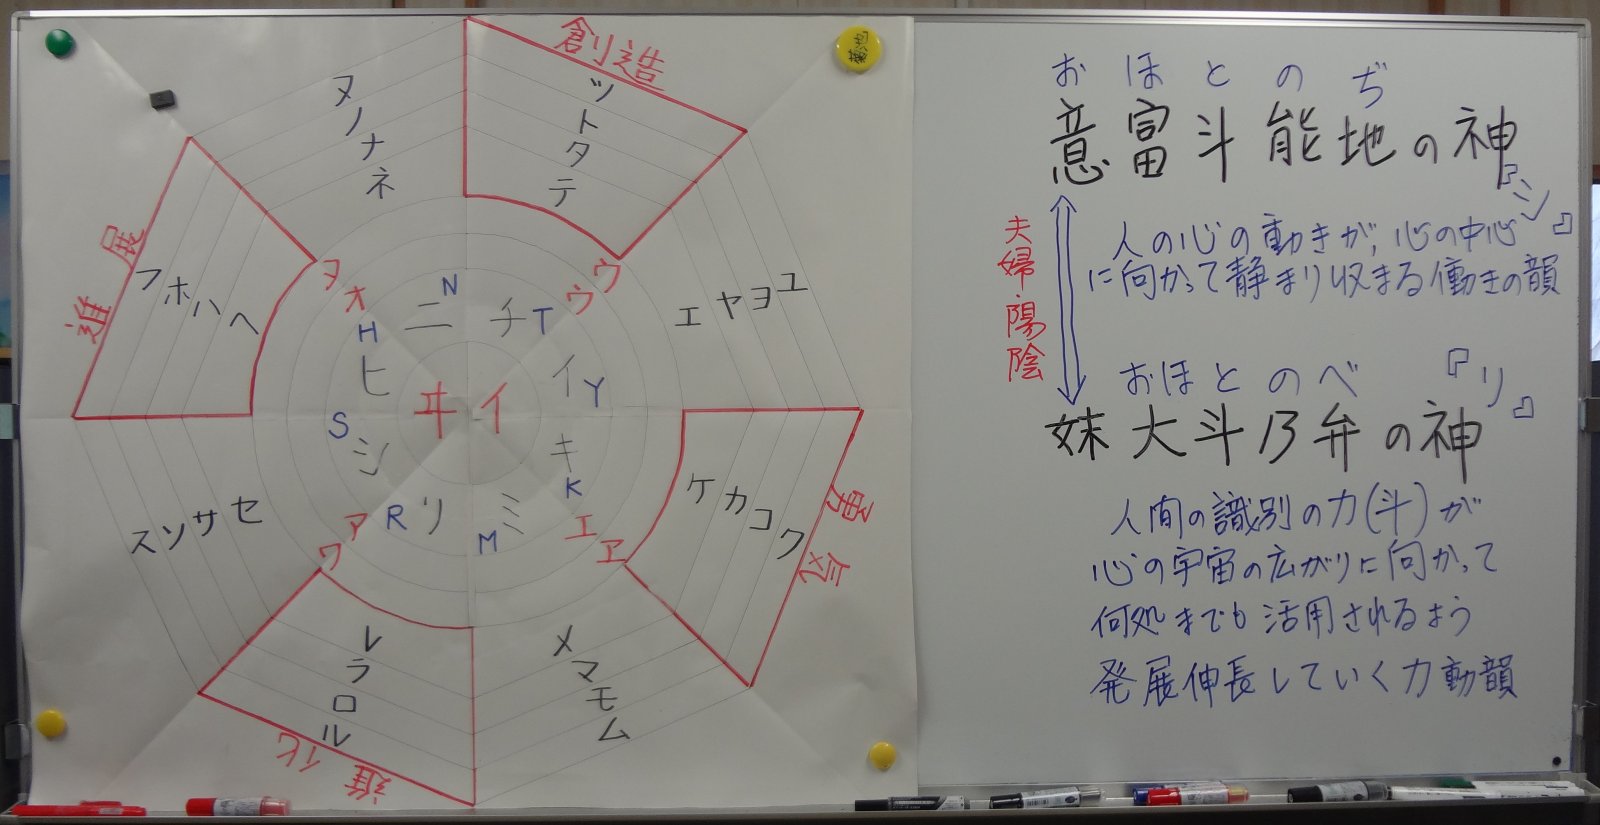 創造
ツトタテ
ヌノナネ
進展
フホハヘ
エヤヨユ
ヲオ
ウウ
N
ニ
チT
H
ヒ
イY
ヰイ
S
シ
キ
K
Rリ
ミ
M
アワ
エヱ
スソサセ
ケカコク
勇気
レラロル
進化
メマモム
菊池
おほとのぢ
意富斗能地の神
『シ』
人の心の動きが、心の中心
に向かって静まり収まる働きの韻
夫婦・陽陰
おほとのべ
『リ』
妹大斗乃弁の神
人間の識別の力(斗)が
心の宇宙の広がりに向かって
何処までも活用されるよう
発展伸長していく力動韻